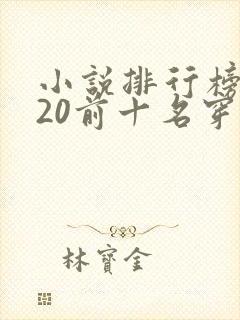 小說排行榜
20前十名穿
林寶金